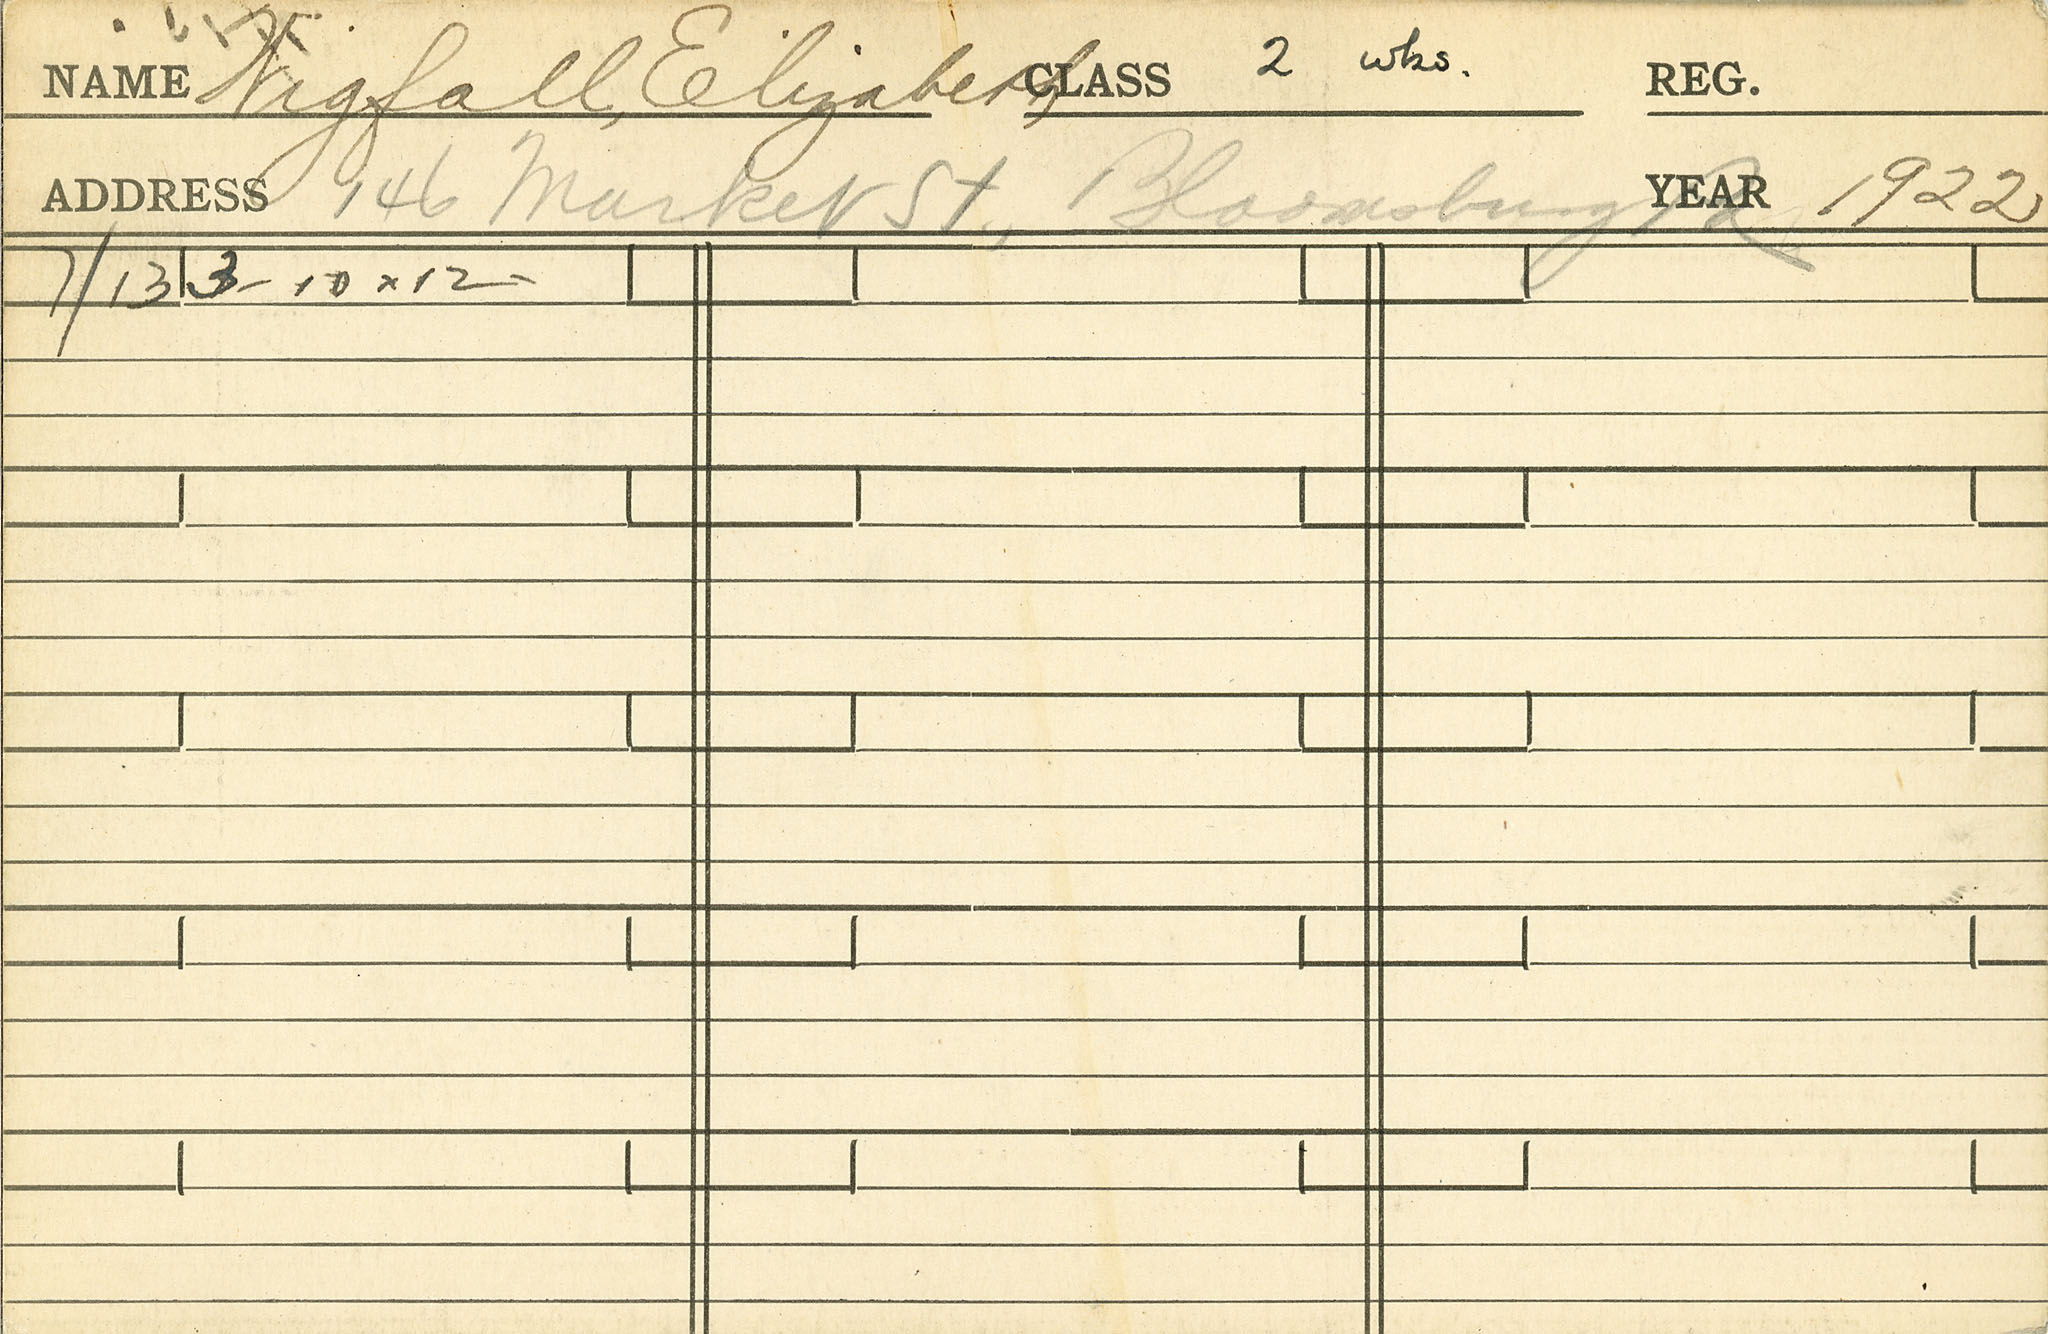 NAME Wigfall, Elizabeth CLASS 2 wks. REG.
ADDRESS 146 Market St., Bloomsburg Pa YEAR 1922
7/13 3- 10 x 12-